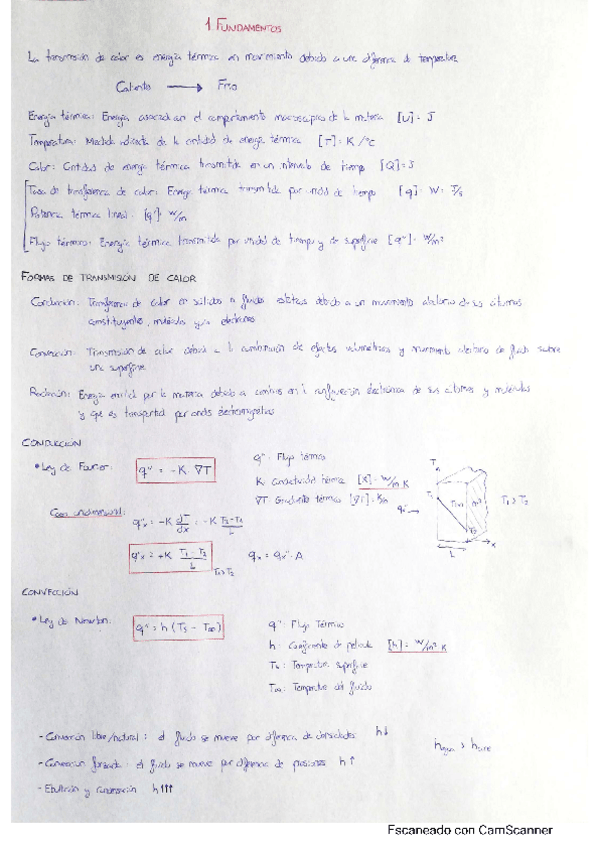 1. FUNDAMENTOS
La transmisión de calor es energía térmica en movimiento debido a una diferencia de temperatura
Caliente → Frío
Energía térmica: Energía asociada con el comportamiento macroscópico de la materia [U] = J
Temperatura: Medida indirecta de la cantidad de energía térmica [T] = K/°C
Calor: Cantidad de energía térmica transmitida en un intervalo de tiempo [Q] = J
Tasa de transferencia de calor: Energía térmica transmitida por unidad de tiempo [q] = W = J/s
Potencia térmica lineal: [q'] = W/m
Flujo térmico: Energía térmica transmitida por unidad de tiempo y de superficie [q''] = W/m²
FORMAS DE TRANSMISIÓN DE CALOR
Conducción: Transferencia de calor en sólidos o fluidos estáticos debido a un movimiento aleatorio de sus átomos
constituyentes, moléculas y/o electrones
Convección: Transmisión de calor debido a la combinación de efectos volumétricos y movimiento aleatorio de fluido sobre
una superficie
Radiación: Energía emitida por la materia debido a cambios en la configuración electrónica de sus átomos y moléculas
y que es transportada por ondas electromagnéticas
CONDUCCIÓN
• Ley de Fourier: q'' = -K · ∇T
q'': Flujo térmico
K: Conductividad térmica [K] = W/m K
∇T: Gradiente térmico [∇T] = K/m
Caso unidimensional: q''x = -K dT/dx = -K T2-T1/L
q''x = +K T1-T2/L T1>T2
qx = q''x · A
T∞ T1 T(x) T2 q''x L x
T1 > T2
CONVECCIÓN
• Ley de Newton: q'' = h (Ts - T∞)
q'': Flujo Térmico
h: Coeficiente de película [h] = W/m² K
Ts: Temperatura superficie
T∞: Temperatura del fluido
- Convección libre/natural: el fluido se mueve por diferencia de densidades h↓
- Convección forzada: el fluido se mueve por diferencia de presiones h↑
- Ebullición y condensación h↑↑↑
hagua > haire
Escaneado con CamScanner